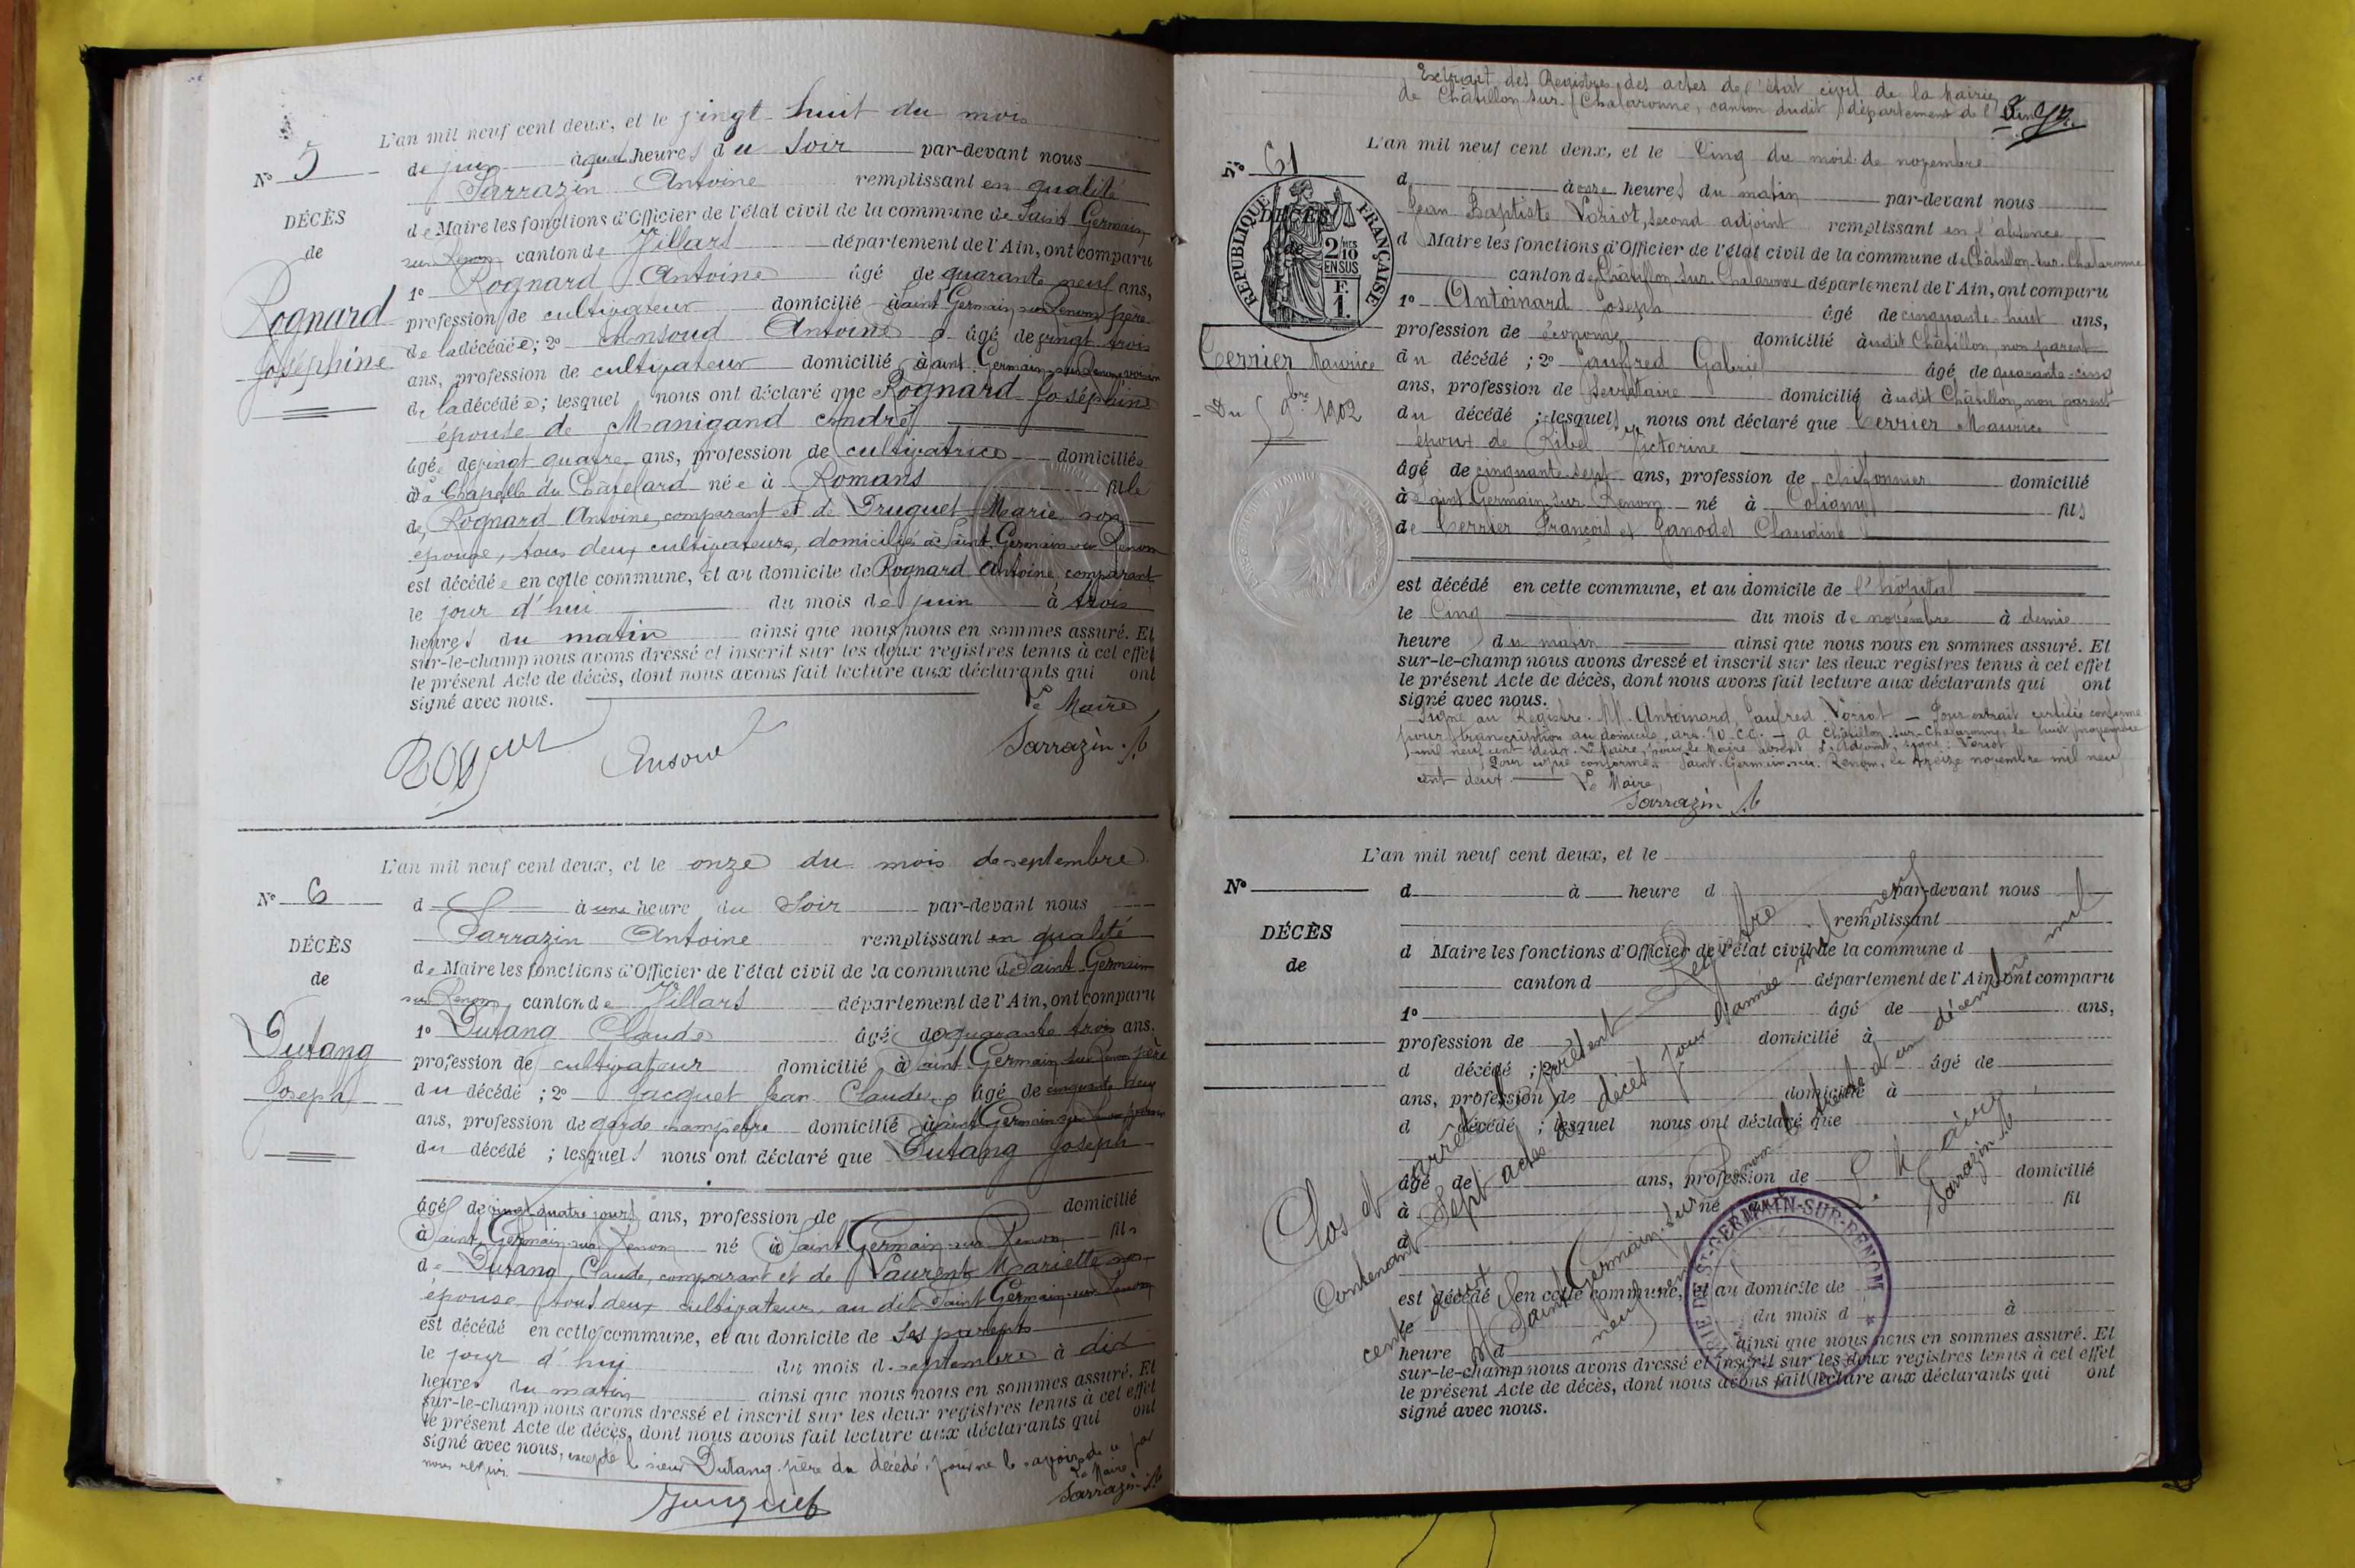 L'an mil neuf cent deux, et le vingt-huit du mois
N° 5
de juin à quatre heures du soir par-devant nous
Sarrazin Antoine remplissant en qualité
DÉCÈS
de Maire les fonctions d'Officier de l'état civil de la commune de Saint Germain
de
sur Renom canton de Villars département de l'Ain, ont comparu
Rognard
Joséphine
1° Rognard Antoine âgé de quarante neuf ans,
profession de cultivateur domicilié à Saint Germain sur Renom père
de la décédée; 2° Ansoud Antoine âgé de vingt trois
ans, profession de cultivateur domicilié à Saint Germain sur Renom voisin
de la décédée; lesquel nous ont déclaré que Rognard Joséphine
épouse de Manigand André
âgée de vingt quatre ans, profession de cultivatrice domiciliée
à la Chapelle du Châtelard née à Romans fille
de Rognard Antoine, comparant et de Truquet Marie son
épouse, tous deux cultivateurs, domiciliés à Saint Germain sur Renom
est décédée en cette commune, et au domicile de Rognard Antoine, comparant
le jour d'hui du mois de juin à trois
heures du matin ainsi que nous nous en sommes assuré. Et
sur-le-champ nous avons dressé et inscrit sur les deux registres tenus à cet effet
le présent Acte de décès, dont nous avons fait lecture aux déclarants qui ont
signé avec nous.
Le Maire
Ansoud
Sarrazin A
L'an mil neuf cent deux, et le onze du mois de septembre
N° 6
d à une heure du soir par-devant nous
Sarrazin Antoine remplissant en qualité
DÉCÈS
de Maire les fonctions d'Officier de l'état civil de la commune de Saint Germain
de
sur Renom canton de Villars département de l'Ain, ont comparu
Dutang
Joseph
1° Dutang Claude âgé de quarante trois ans.
profession de cultivateur domicilié à Saint Germain sur Renom père
du décédé; 2° Jacquet Jean Claude âgé de cinquante deux
ans, profession de garde champêtre domicilié à Saint Germain sur Renom
du décédé; lesquels nous ont déclaré que Dutang Joseph
âgé de vingt quatre jours ans, profession de domicilié
à Saint Germain sur Renom né à Saint Germain sur Renom fils
de Dutang Claude, comparant et de Laurent Mariette son
épouse, tous deux cultivateurs au dit Saint Germain sur Renom
est décédé en cette commune, et au domicile de ses parents
le jour d'hui du mois de septembre à dix
heures du matin ainsi que nous nous en sommes assuré. Et
sur-le-champ nous avons dressé et inscrit sur les deux registres tenus à cet effet
le présent Acte de décès, dont nous avons fait lecture aux déclarants qui ont
signé avec nous, excepté le sieur Dutang père du décédé, pour ne le savoir de ce par
nous requis.
Le Maire
Sarrazin A
Jacquet
Extrait des Registres des actes de l'état civil de la Mairie
de Châtillon-sur-Chalaronne, canton dudit, département de l'Ain
L'an mil neuf cent deux, et le Cinq du mois de novembre
N° 61
d à onze heures du matin par-devant nous
Jean Baptiste Voriot, second adjoint remplissant en l'absence
RÉPUBLIQUE FRANÇAISE
DÉCÈS
de
2/10 MES EN SUS
F. 1.
d Maire les fonctions d'Officier de l'état civil de la commune de Châtillon-sur-Chalaronne
canton de Châtillon-sur-Chalaronne département de l'Ain, ont comparu
1° Antoinard Joseph âgé de cinquante-huit ans,
profession de économe domicilié à udit Châtillon, non parent
Terrier Maurice
Du 5 9bre 1902
du décédé; 2° Jaufred Gabriel âgé de quarante-cinq
ans, profession de secrétaire domicilié à udit Châtillon, non parent
du décédé; lesquels nous ont déclaré que Terrier Maurice
époux de Ribel Victorine
âgé de cinquante-sept ans, profession de chiffonnier domicilié
à Saint-Germain-sur-Renom né à Coligny fils
de Terrier François et Janodet Claudine
est décédé en cette commune, et au domicile de l'hôpital
le Cinq du mois de novembre à demie
heure du matin ainsi que nous nous en sommes assuré. Et
sur-le-champ nous avons dressé et inscrit sur les deux registres tenus à cet effet
le présent Acte de décès, dont nous avons fait lecture aux déclarants qui ont
signé avec nous.
Signé au Registre. MM. Antoinard, Jaufred, Voriot — Pour extrait certifié conforme
pour transcription au domicile, art. 80 C.C. — A Châtillon-sur-Chalaronne, le huit novembre
mil neuf cent deux. Le Maire, pour le Maire absent, l'Adjoint, signé: Voriot
Pour copie conforme. Saint-Germain-sur-Renom, le treize novembre mil neuf
cent deux. Le Maire,
Sarrazin A
L'an mil neuf cent deux, et le
N° d à heure d par-devant nous
remplissant
DÉCÈS
d Maire les fonctions d'Officier de l'état civil de la commune d
de
canton d département de l'Ain, ont comparu
1° âgé de ans,
profession de domicilié à
d décédé; 2° âgé de
ans, profession de domicilié à
d décédé; lesquel nous ont déclaré que
âgé de ans, profession de domicilié
à né à fil
d
est décédé en cette commune, et au domicile de
le du mois d à
heure d ainsi que nous nous en sommes assuré. Et
sur-le-champ nous avons dressé et inscrit sur les deux registres tenus à cet effet
le présent Acte de décès, dont nous avons fait lecture aux déclarants qui ont
signé avec nous.
Clos et arrêté le présent Registre
Contenant Sept actes de décès pour l'année mil neuf
cent deux
A Saint Germain-sur-Renom le trente et un décembre mil
neuf cent deux
Le Maire,
Sarrazin A
MAIRIE DE ST-GERMAIN-SUR-RENOM